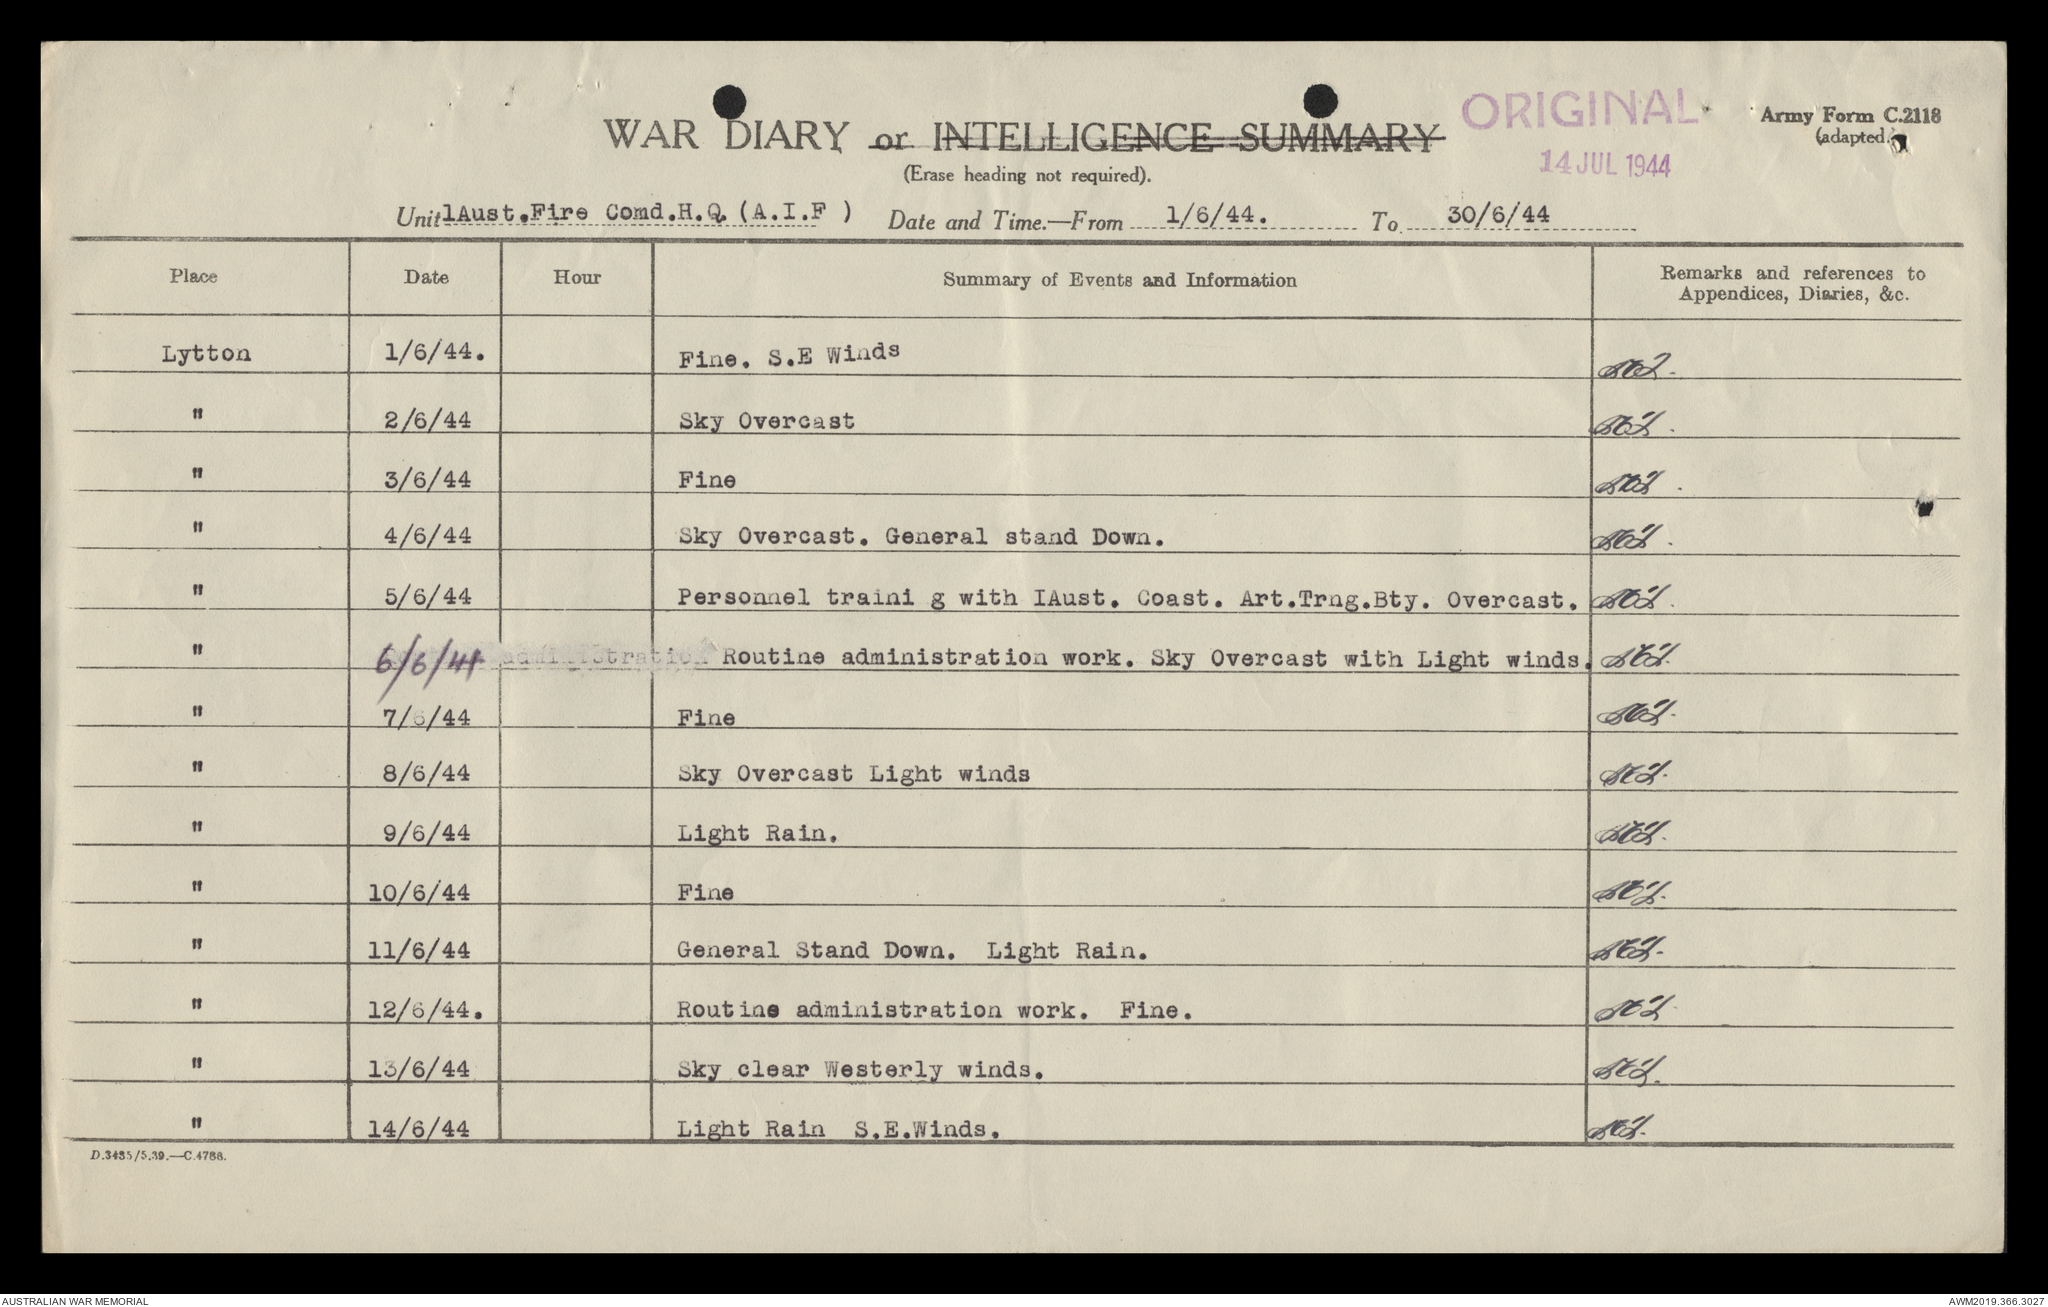 ORIGINAL
Army Form C.2118
(adapted.)
WAR DIARY or INTELLIGENCE SUMMARY
14 JUL 1944
(Erase heading not required).
Unit 1Aust.Fire Comd.H.Q.(A.I.F ) Date and Time.—From 1/6/44. To 30/6/44
Place Date Hour Summary of Events and Information Remarks and references to
Appendices, Diaries, &c.
Lytton 1/6/44. Fine. S.E Winds
" 2/6/44 Sky Overcast
" 3/6/44 Fine
" 4/6/44 Sky Overcast. General stand Down.
" 5/6/44 Personnel traini g with IAust. Coast. Art.Trng.Bty. Overcast.
" 6/6/44 administration Routine administration work. Sky Overcast with Light winds.
" 7/6/44 Fine
" 8/6/44 Sky Overcast Light winds
" 9/6/44 Light Rain.
" 10/6/44 Fine
" 11/6/44 General Stand Down. Light Rain.
" 12/6/44. Routine administration work. Fine.
" 13/6/44 Sky clear Westerly winds.
" 14/6/44 Light Rain S.E.Winds.
D.3435/5.39.—C.4788.
AUSTRALIAN WAR MEMORIAL
AWM2019.366.3027